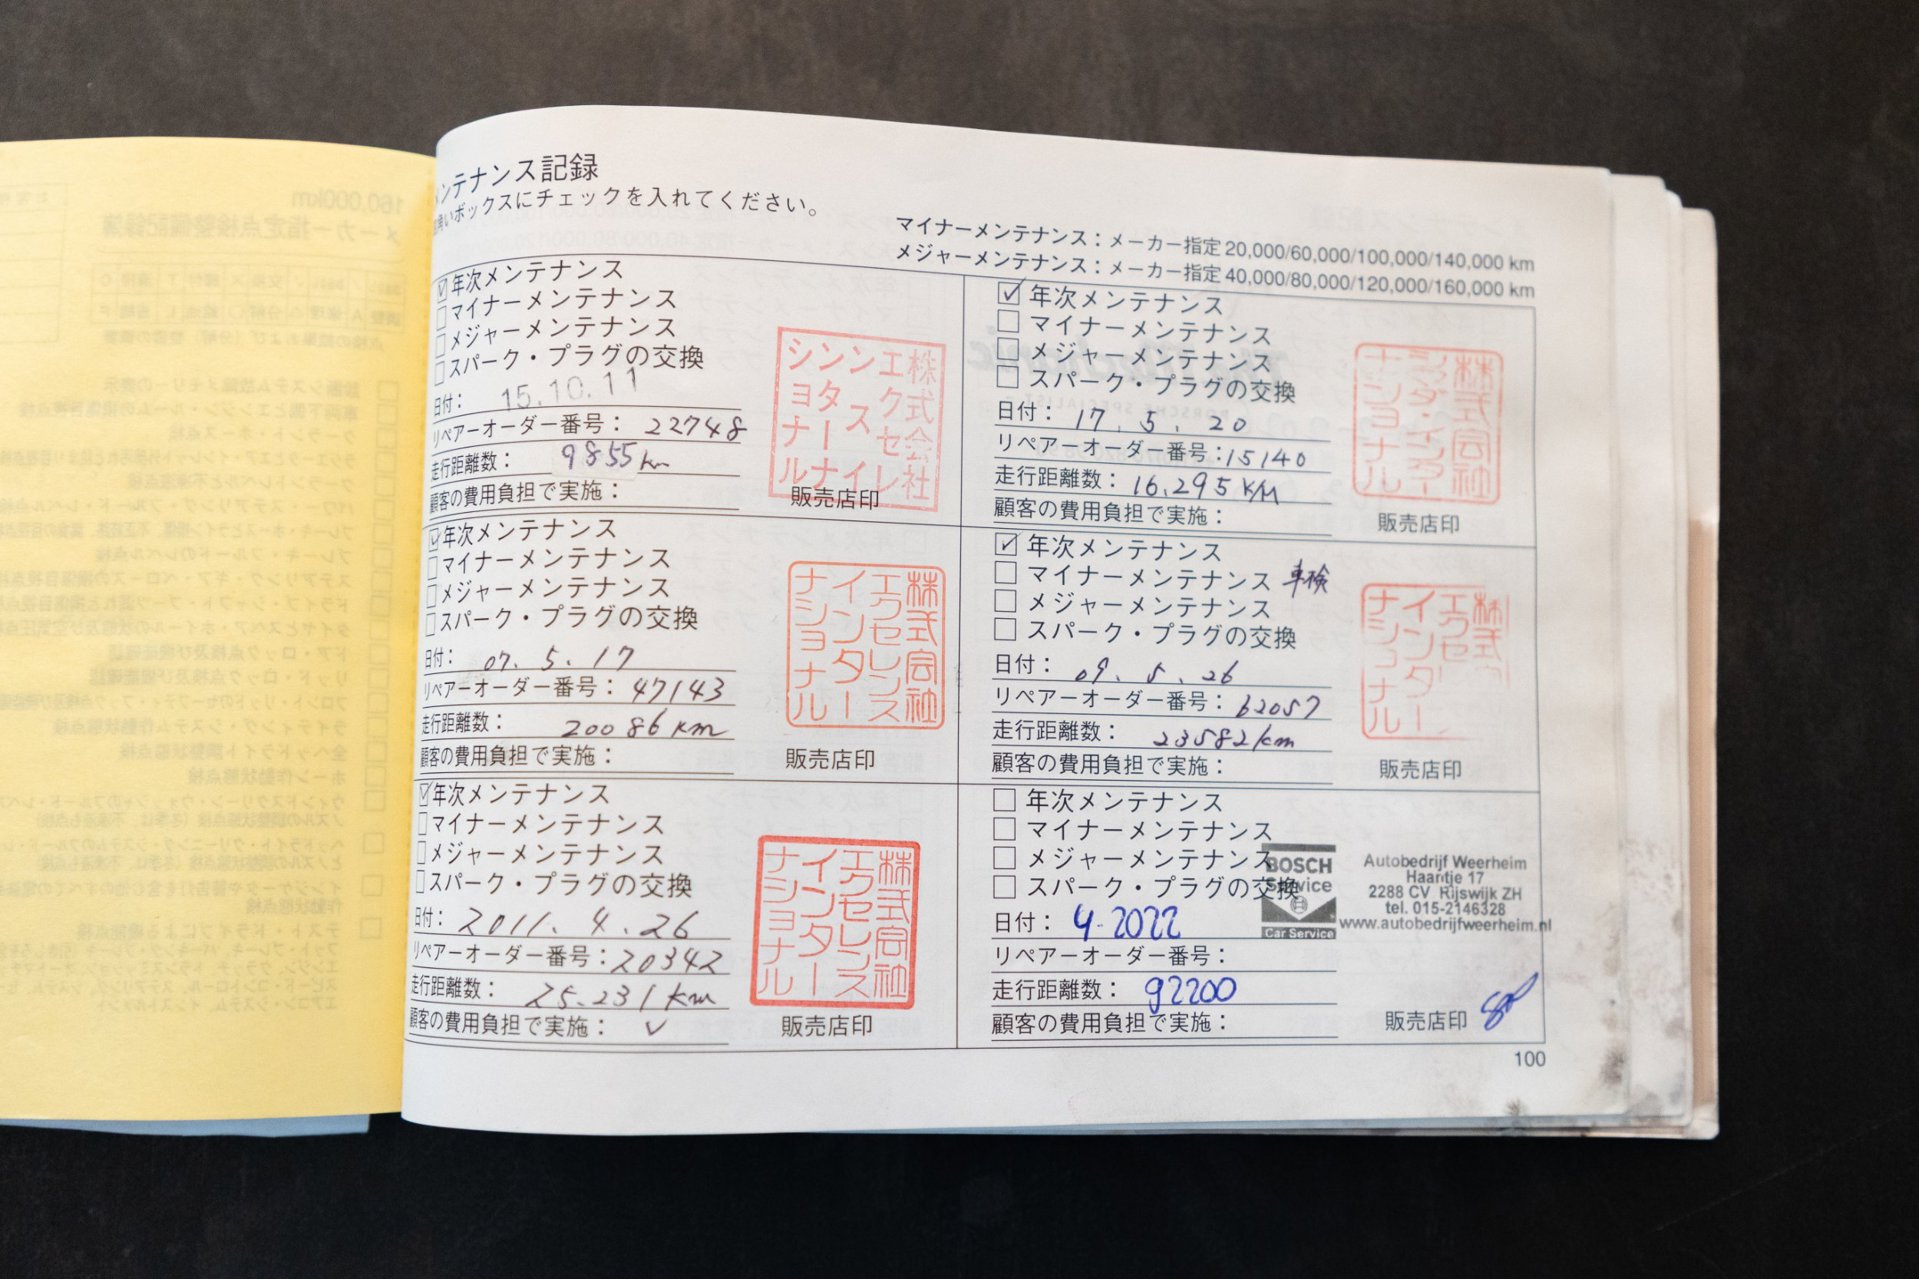 メンテナンス記録
ボックスにチェックを入れてください。
マイナーメンテナンス：メーカー指定 20,000/60,000/100,000/140,000 km
メジャーメンテナンス：メーカー指定 40,000/80,000/120,000/160,000 km
年次メンテナンス
マイナーメンテナンス
メジャーメンテナンス
スパーク・プラグの交換
日付： 15.10.11
リペアーオーダー番号： 22748
走行距離数： 9855km
顧客の費用負担で実施：
株式会社
エクセレ
ンスイ
ンターナ
ショナル
販売店印
年次メンテナンス
マイナーメンテナンス
メジャーメンテナンス
スパーク・プラグの交換
日付： 17. 5. 20
リペアーオーダー番号： 15140
走行距離数： 16,295 KM
顧客の費用負担で実施：
株式会社
ナショナル
販売店印
年次メンテナンス
マイナーメンテナンス
メジャーメンテナンス
スパーク・プラグの交換
日付： 07. 5. 17
リペアーオーダー番号： 47143
走行距離数： 20086 km
顧客の費用負担で実施：
株式会社
エクセレンス
インター
ナショナル
販売店印
年次メンテナンス
マイナーメンテナンス 車検
メジャーメンテナンス
スパーク・プラグの交換
日付： 09. 5. 26
リペアーオーダー番号： 62057
走行距離数： 23582km
顧客の費用負担で実施：
株式
エクセ
インター
ナショナル
販売店印
年次メンテナンス
マイナーメンテナンス
メジャーメンテナンス
スパーク・プラグの交換
日付： 2011. 4. 26
リペアーオーダー番号： 20342
走行距離数： 25.231 km
顧客の費用負担で実施： ✓
株式会社
エクセレンス
インター
ナショナル
販売店印
年次メンテナンス
マイナーメンテナンス
メジャーメンテナンス
スパーク・プラグの交換
日付： 4-2022
リペアーオーダー番号：
走行距離数： 92200
顧客の費用負担で実施：
BOSCH
Service
Car Service
Autobedrijf Weerheim
Haantje 17
2288 CV Rijswijk ZH
tel. 015-2146328
www.autobedrijfweerheim.nl
販売店印
100